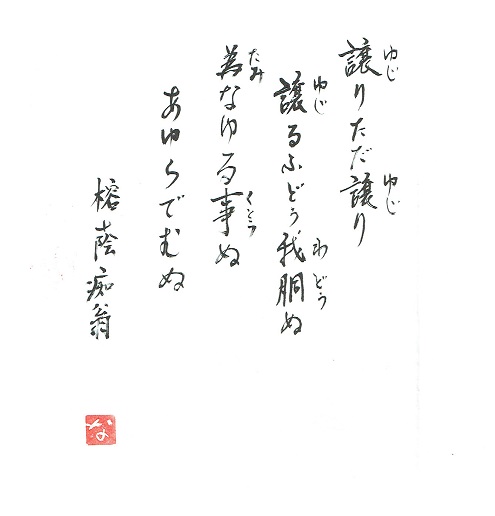 ゆじ ゆじ
譲りただ譲り
ゆじ わ どう
譲るふどう我胴ぬ
たみ くとぅ
為なゆる事ぬ
あゆらでむぬ
榕蔭痴翁
な